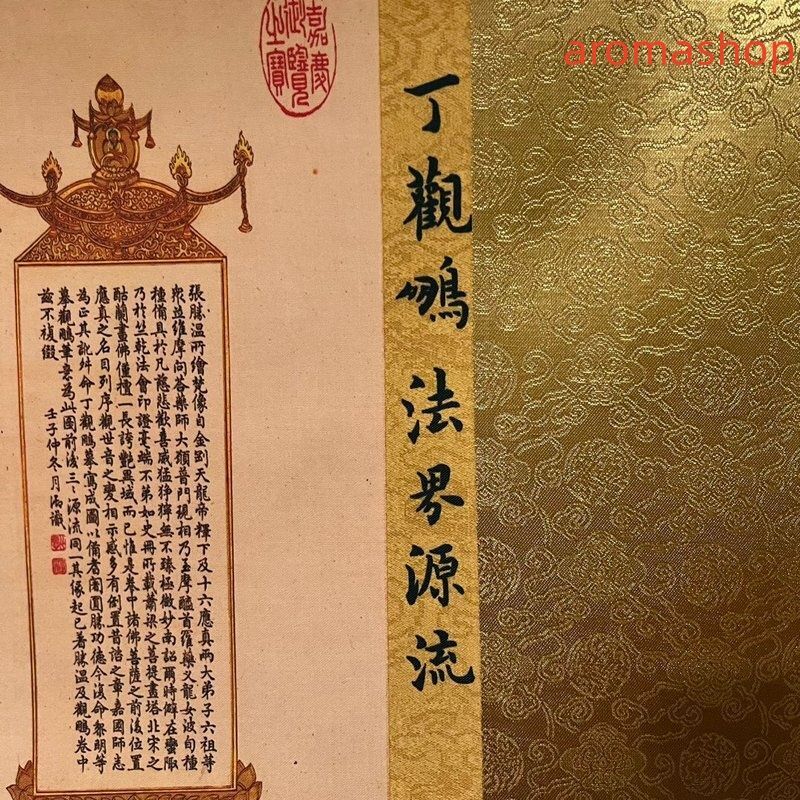 aromashop
嘉慶
御覽
之寶
丁觀鵬 法界源流
張勝溫所繪梵像自金剛天龍帝釋下及十六應真兩大弟子六祖等
眾並維摩問答藥師大願普門現相乃至摩醯首羅藥叉龍女波旬種
種備具於凡慈悲歡喜威猛猙獰無不臻極微妙南詔爾時僻在蠻陬
乃於竺乾法會印證毫端不弟如史冊所載蕭梁之菩提畫塔北宋之
酤蘭畫佛僅擅一長誇艷異域而已惟是卷中諸佛菩薩之前後位置
應真之名目列序觀世音之變相示感多有倒置昔諮之章嘉國師志
為正其訛舛命丁觀鵬摹寫成圖以備香圓勝功德今復命黎明等
摹觀鵬筆意為此圖前後三三源流同一其緣起已著勝溫及觀鵬卷中
茲不複綴 壬子仲冬月御識